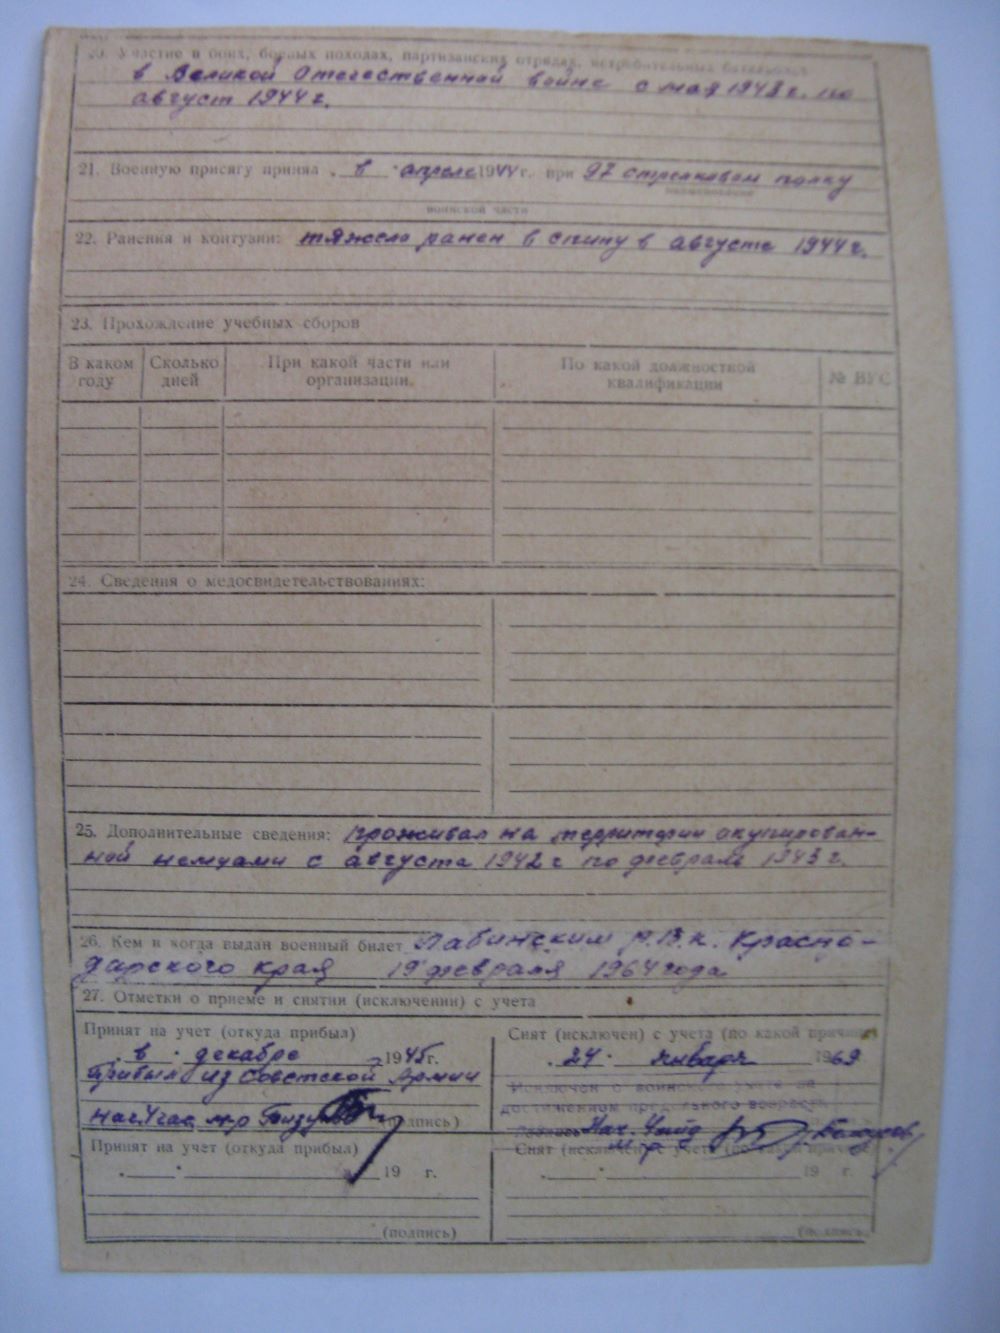 20. Участие в боях, боевых походах, партизанских отрядах, истребительных батальонах
в Великой Отечественной войне с мая 1943 г. по
август 1944 г.
21. Военную присягу принял в апреле 1944 г. при 97 стрелковом полку
воинской части
22. Ранения и контузии: тяжело ранен в спину в августе 1944 г.
23. Прохождение учебных сборов
В каком году
Сколько дней
При какой части или организации
По какой должностной квалификации
№ ВУС
24. Сведения о медосвидетельствованиях:
25. Дополнительные сведения: проживал на территории окупирован-
ной немцами с августа 1942 г по февраль 1943 г.
26. Кем и когда выдан военный билет Лабинским Р.В.К. Красно-
дарского края 19 февраля 1964 года
27. Отметки о приеме и снятии (исключении) с учета
Принят на учет (откуда прибыл)
в декабре 1945 г.
прибыл из Советской Армии
Нач. 4 час. м-р (подпись)
Снят (исключен) с учета (по какой причине)
24 января 1969
Исключен с воинского учета по
достижении предельного возраста
Подпись Нач.
м-р
Принят на учет (откуда прибыл)
19 г.
(подпись)
Снят (исключен) с учета (по какой причине)
19 г.
(подпись)